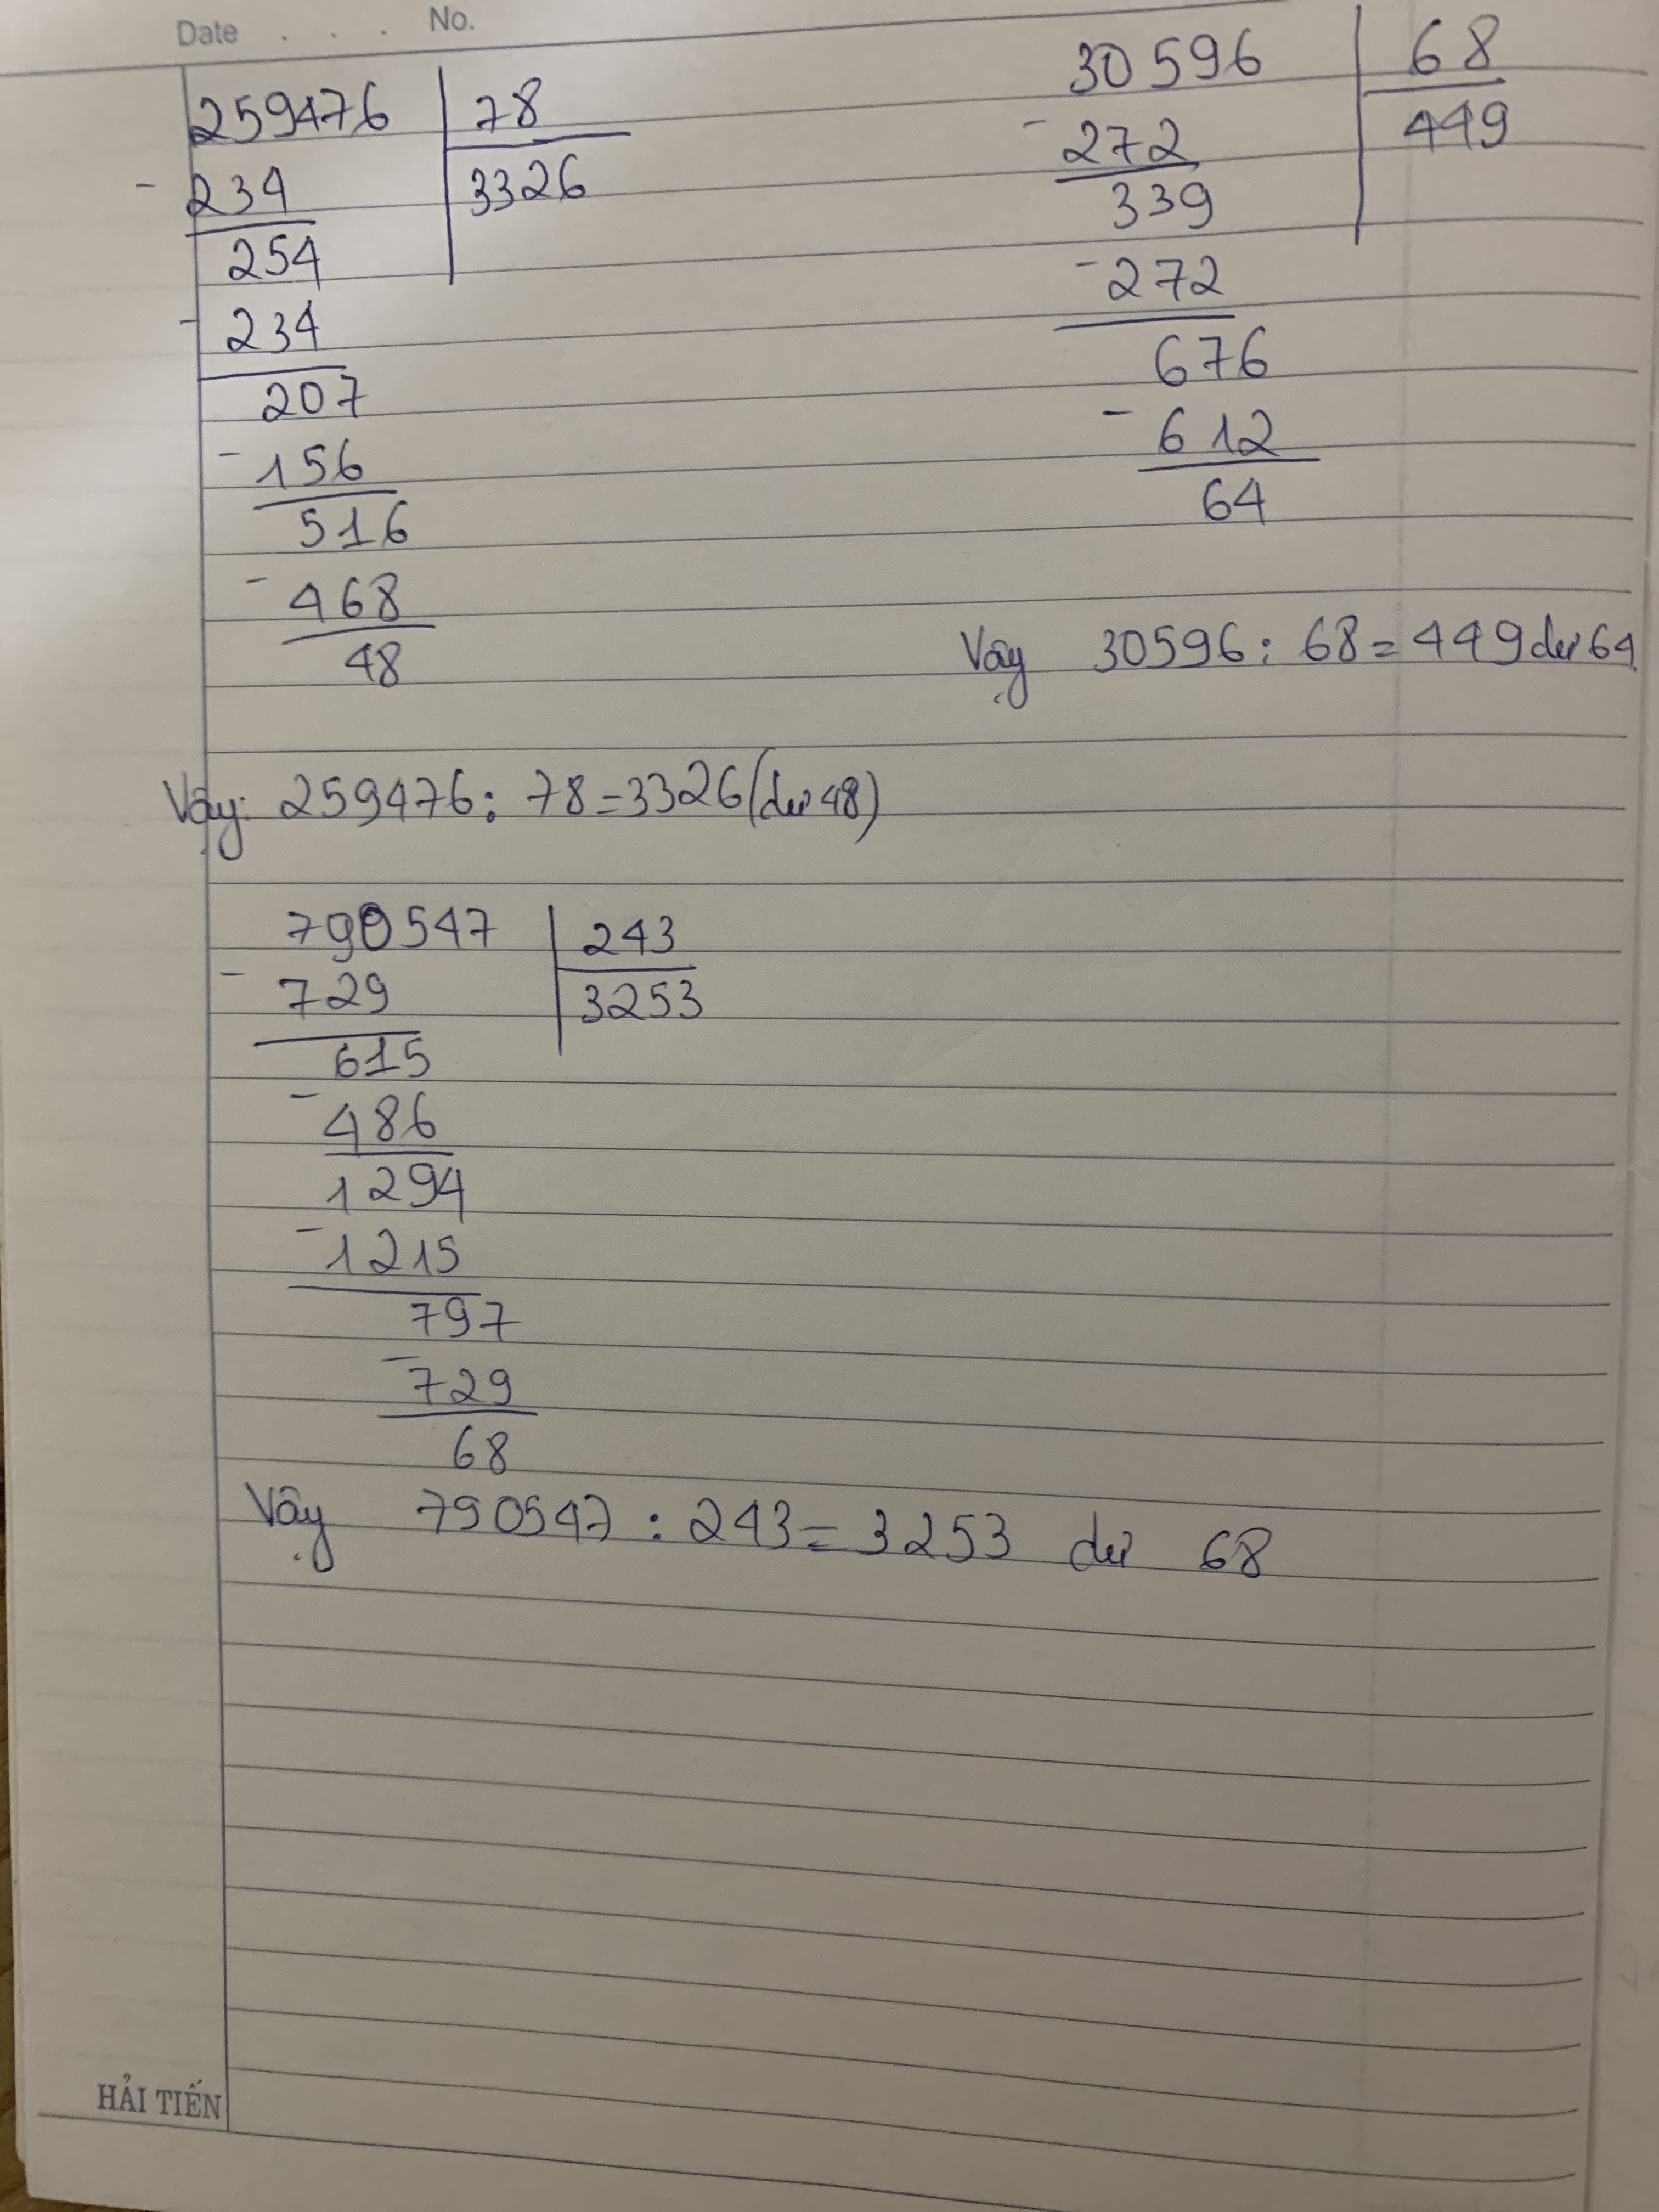 Date . . . No.
259476 78
- 234 3326
254
- 234
207
- 156
516
- 468
48
Vậy: 259476 : 78 = 3326 (dư 48)
30596 68
- 272 449
339
- 272
676
- 612
64
Vậy 30596 : 68 = 449 dư 64
790547 243
- 729 3253
615
- 486
1294
- 1215
797
- 729
68
Vậy 790547 : 243 = 3253 dư 68
HẢI TIẾN